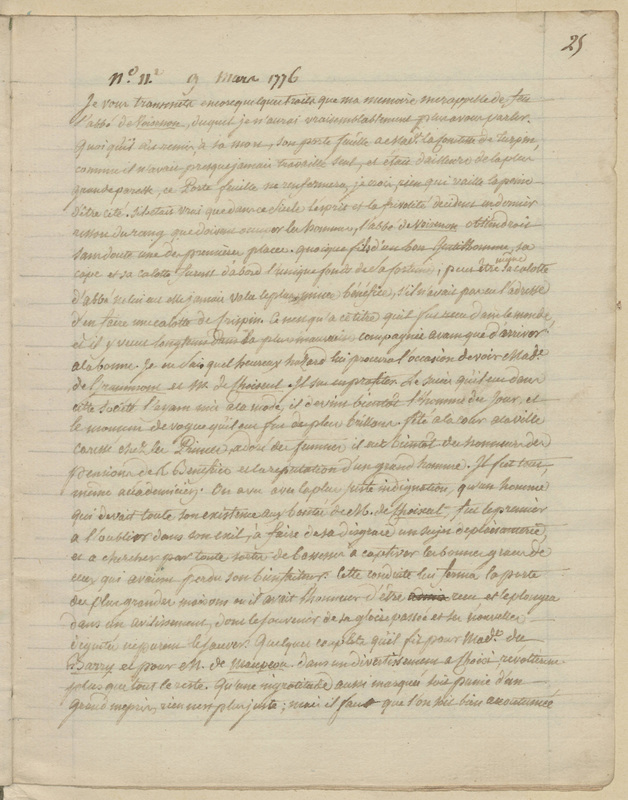 25
N.º 11.e 9 Mars 1776
Je vous transmets encore quelques traits que ma memoire me rappelle de feu
l'abbé de Voisenon, duquel je n'aurai vraisemblablement plus a vous parler.
Quoiqu'il ait remis, à sa mort, son porte feuille a Mad.e la Comtesse de Turpin,
comme il n'avait presque jamais travaillé seul, et était d'ailleurs de la plus
grande paresse, ce Porte feuille ne renfermera, je crois, rien qui vaille la peine
d'être cité. S'il était vrai que dans ce siecle l'esprit et la frivolité decident en dernier
ressort du rang que doivent occuper les hommes, l'abbé de Voisenon obtiendroit
sans doute une des premieres places. quoique fils d'un bon Gentilhomme, sa
cape et sa calotte furent d'abord l'unique fonds de sa fortune; peut être même sa calotte
d'abbé ne lui aurait elle jamais valu le plus mince bénéfice, s'il n'avait pas eu l'adresse
d'en faire une calotte de Crispin. Ce n'est qu'a ce titre qu'il fut reçu dans le monde
et il y vecut longtems dans la plus mauvaise compagnie avant que d'arriver
a la bonne. Je ne sais quel heureux hazard lui procura l'occasion de voir Mad.e
de Grammont et M. de Choiseul. Il sut en profiter. Le succès qu'il eut dans
cette société l'ayant mis a la mode, il devint bientôt l'homme du jour, et
le moment de vogue qu'il eut fut des plus brillans. fêté a la cour a la ville
caressé chez les Princes adoré des femmes il eut bientôt des honneurs des
pensions des Benefices et la reputation d'un grand homme. Il fut tout
même académicien. On a vu avec la plus juste indignation, qu'un homme
qui devait toute son existence aux bontés de M. de Choiseul, fut le premier
a l'oublier dans son exil, à faire de sa disgrace un sujet de plaisanterie,
et a chercher par toute sorte de bassesses a captiver les bonnes graces de
ceux qui avaient perdu son bienfaiteur. Cette conduite lui ferma la porte
des plus grandes maisons où il avait l'honneur d'être reçu et le plongea
dans un avilissement, dont le souvenir de sa gloire passée et ses nouvelles
dignités ne purent le sauver. Quelques couplets qu'il fit pour Mad.e du
Barry et pour M. de Maupeou dans un divertissement a Choisi révolterent
plus que tout le reste. Qu'une ingratitude aussi marquée soit punie d'un
grand mepris, rien n'est plus juste; mais il faut que l'on soit bien accoutumé